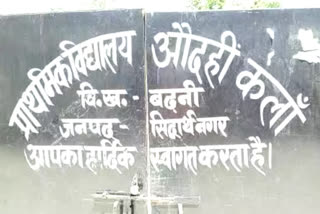 प्राथमिक विद्यालय औदहीं कलाँ
वि.ख.- बढ़नी
जनपद- सिद्धार्थनगर
आपका हार्दिक स्वागत करता है।